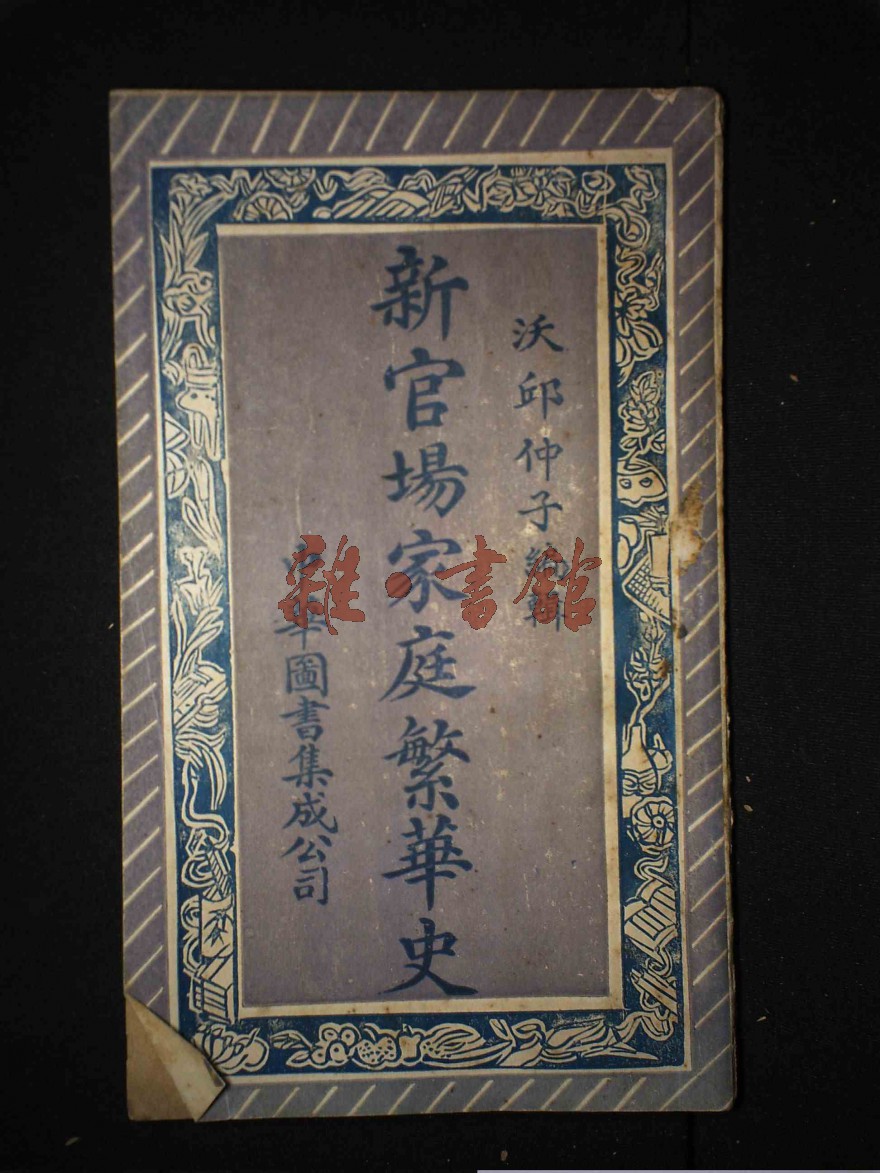 沃邱仲子編輯
新官場家庭繁華史
中華圖書集成公司
雜·書館